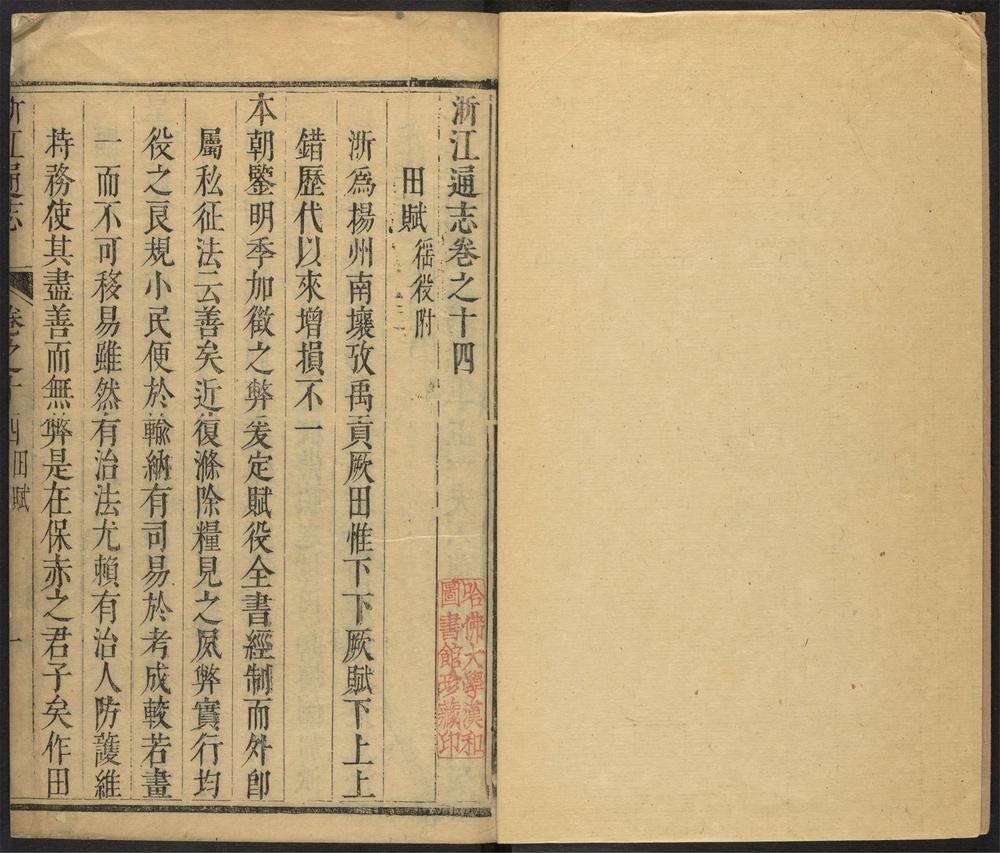 浙江通志卷之十四
田賦徭役附
浙爲楊州南壤攷禹貢厥田惟下下厥賦下上上
錯歷代以來增損不一
本朝鑒明季加徵之弊爰定賦役全書經制而外卽
屬私征法云善矣近復滌除糧見之夙弊實行均
役之良規小民便於輸納有司易於考成較若畫
一而不可移易雖然有治法尤賴有治人防護維
持務使其盡善而無弊是在保赤之君子矣作田
浙江通志
卷之十四田賦
一
哈佛大學漢和
圖書館珍藏印